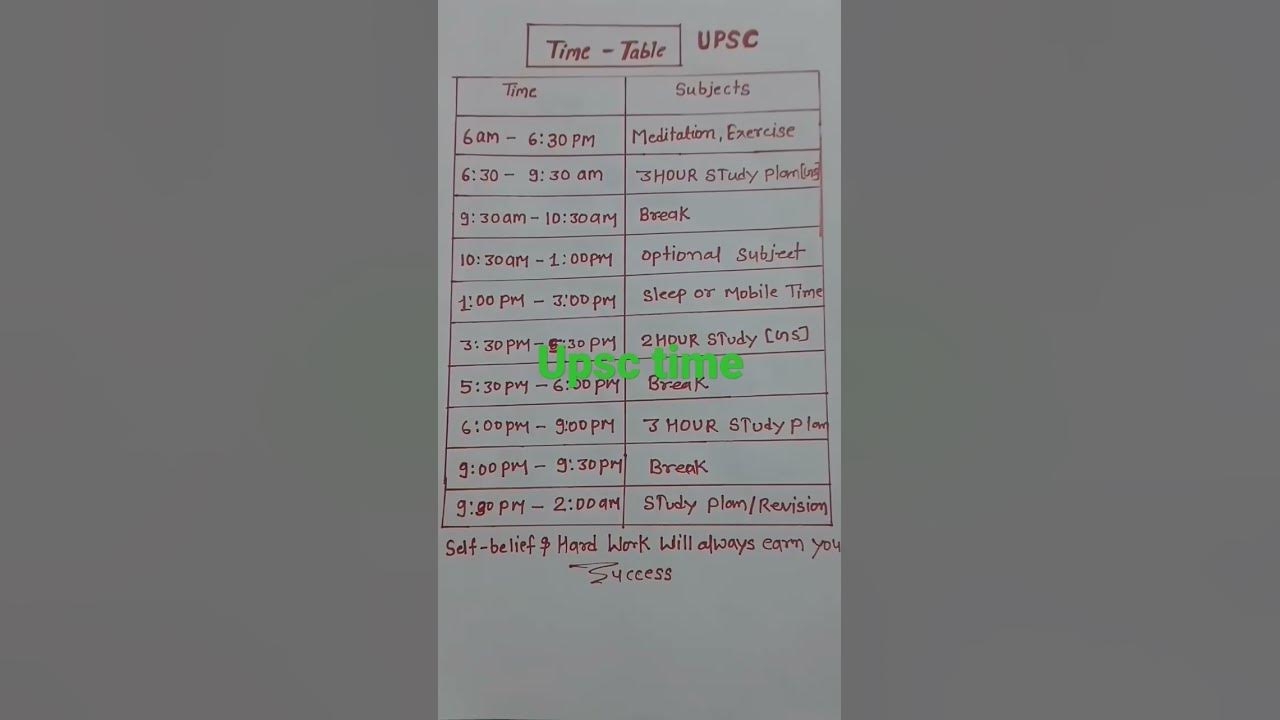 Time - Table UPSC
Time Subjects
6am - 6:30 PM Meditation, Exercise
6:30 - 9:30 am 3 HOUR STudy Plan [GS]
9:30am - 10:30am Break
10:30am - 1:00PM Optional Subject
1:00 PM - 3:00PM Sleep or Mobile Time
3:30PM - 5:30 PM 2 HOUR STudy [GS]
Upsc time
5:30PM - 6:00PM Break
6:00PM - 9:00PM 3 HOUR STudy Plan
9:00PM - 9:30PM Break
9:30PM - 2:00am STudy Plan/Revision
Self-belief & Hard Work Will always earn you
Success